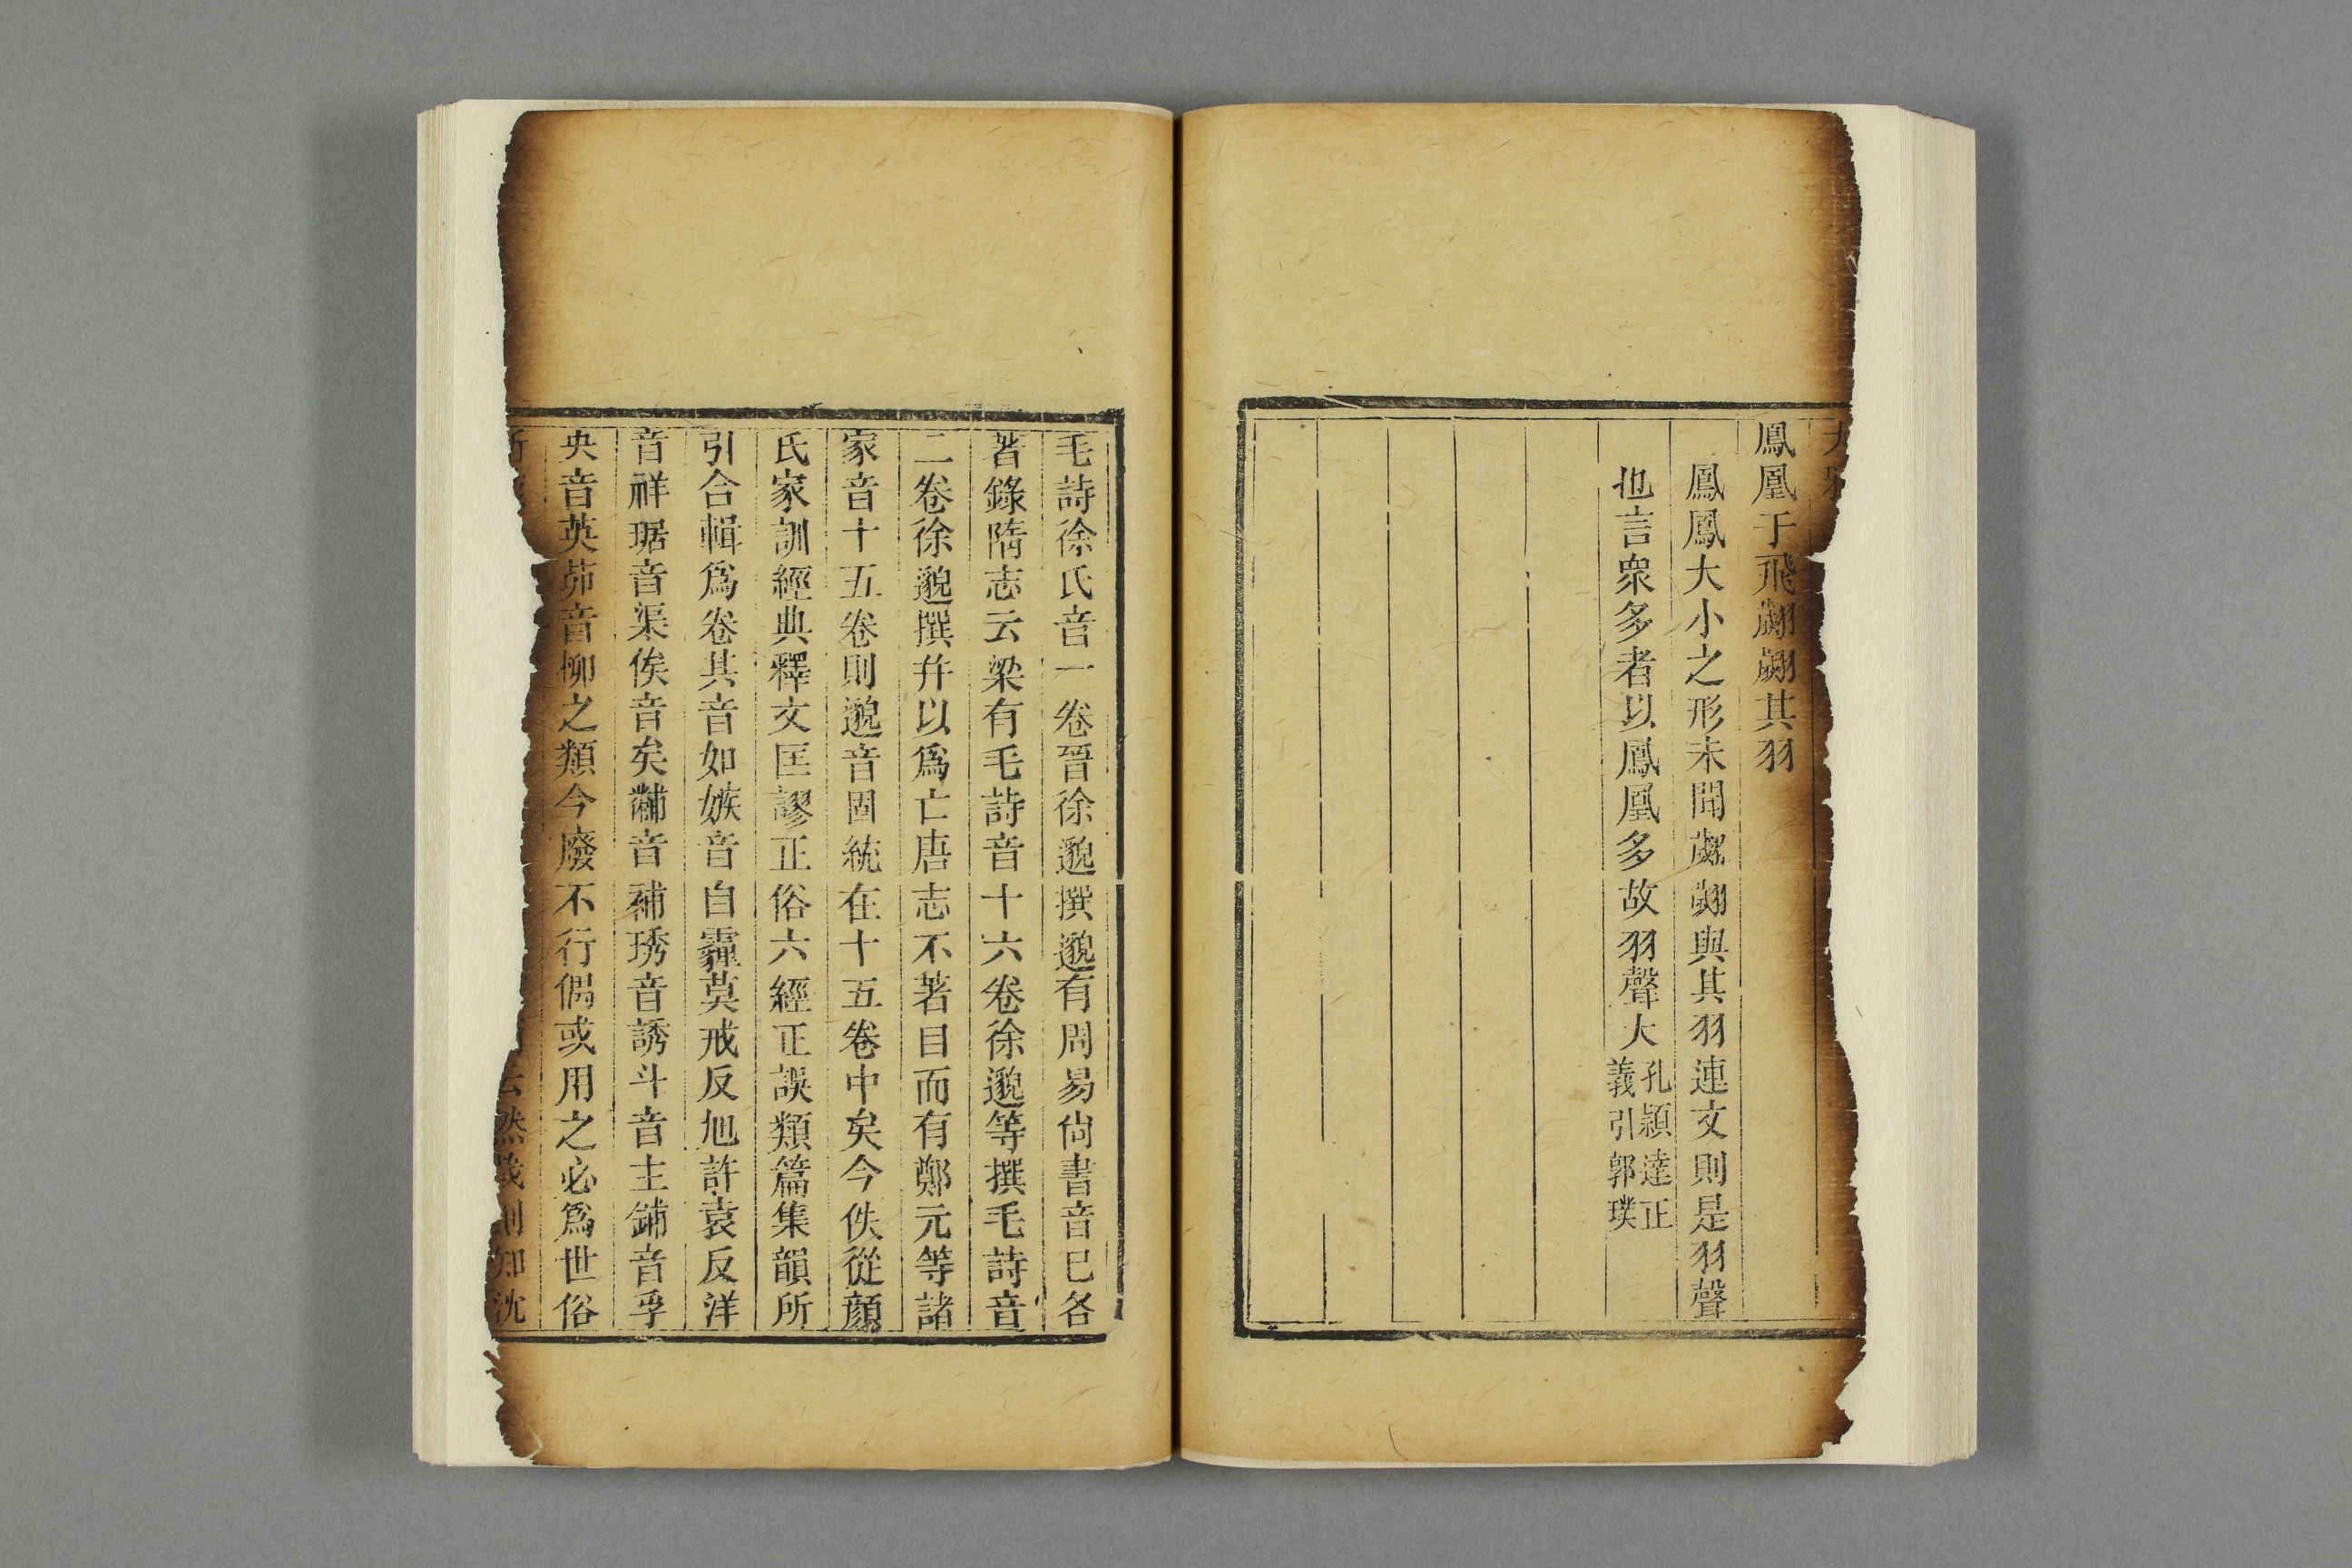 大雅
鳳凰于飛翽翽其羽
鳳鳳大小之形未聞翽翽與其羽連文則是羽聲
也言衆多者以鳳凰多故羽聲大孔穎達正義引郭璞
毛詩徐氏音一卷晉徐邈撰邈有周易尙書音已各
著錄隋志云梁有毛詩音十六卷徐邈等撰毛詩音
二卷徐邈撰幷以爲亡唐志不著目而有鄭元等諸
家音十五卷則邈音固統在十五卷中矣今佚從顔
氏家訓經典釋文匡謬正俗六經正誤類篇集韻所
引合輯爲卷其音如嫉音自霾莫戒反旭許袁反洋
音祥琚音渠俟音矣黼音補琇音誘斗音主鋪音孚
央音英茆音柳之類今廢不行偶或用之必爲世俗
云然 則知沈